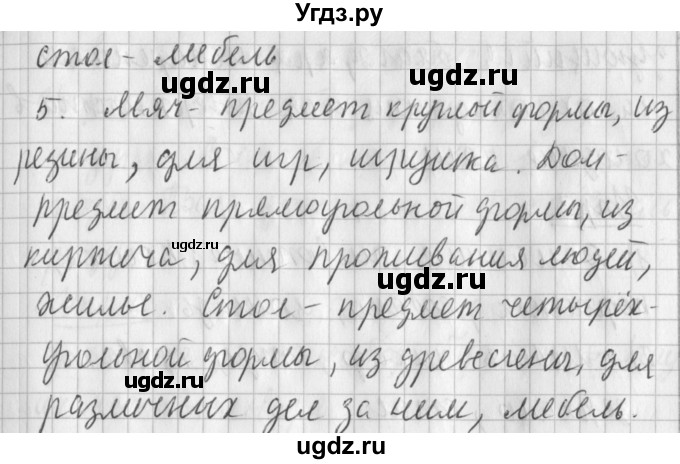 Угдз.ру
стол - мебель
ugdz.ru ugdz.ru
5. Мяч - предмет круглой формы, из
резины, для игр, игрушка. Дом -
предмет прямоугольной формы, из
ugdz.ru ugdz.ru
кирпича, для проживания людей,
жильё. Стол - предмет четырёх-
угольной формы, из древесины, для
ugdz.ru ugdz.ru
различных дел за ним, мебель.
ugdz.ru